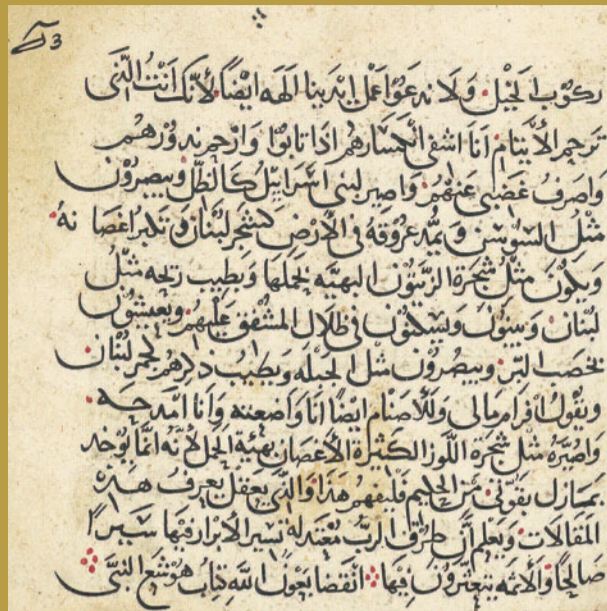 ركوب الخيل ولا ندعوا عمل ايدينا الهه ايضًا لأنك انت الذى
ترحم الأيتام انا اشفى انحسارهم اذا تابوا وارحم ندورهم
واصرف غضبى عنهم واصير لبنى اسراييل كالظل ويصيرون
مثل السوسن ويمد عروقه فى الأرض كشجر لبنان وتكبر اغصانه
ويكون مثل شجرة الزيتون البهيه بحملها ويطيب ريحه مثل
لبنان ويبنون ويسكنون فى ظلال المشفق عليهم ويعيشون
بخصب البر ويصيرون مثل الحبله ويطيب ذكرهم كخمر لبنان
ويقول افرام مالى وللأصنام ايضًا انا واضعته وانا امدحه
واصيره مثل شجرة اللوز الكثيرة الأغصان بهية الحمل لأنه انما يوخد
بقوتى من الحليم فليفهم هذا والذى يعقل يعرف هذه
المقالات ويعلم أن طرق الرب معتدله تسير الأبرار فيها سيرًا
صالحًا والأثمه يتعترون فيها انقضا بعون الله كتاب هوشع النبى